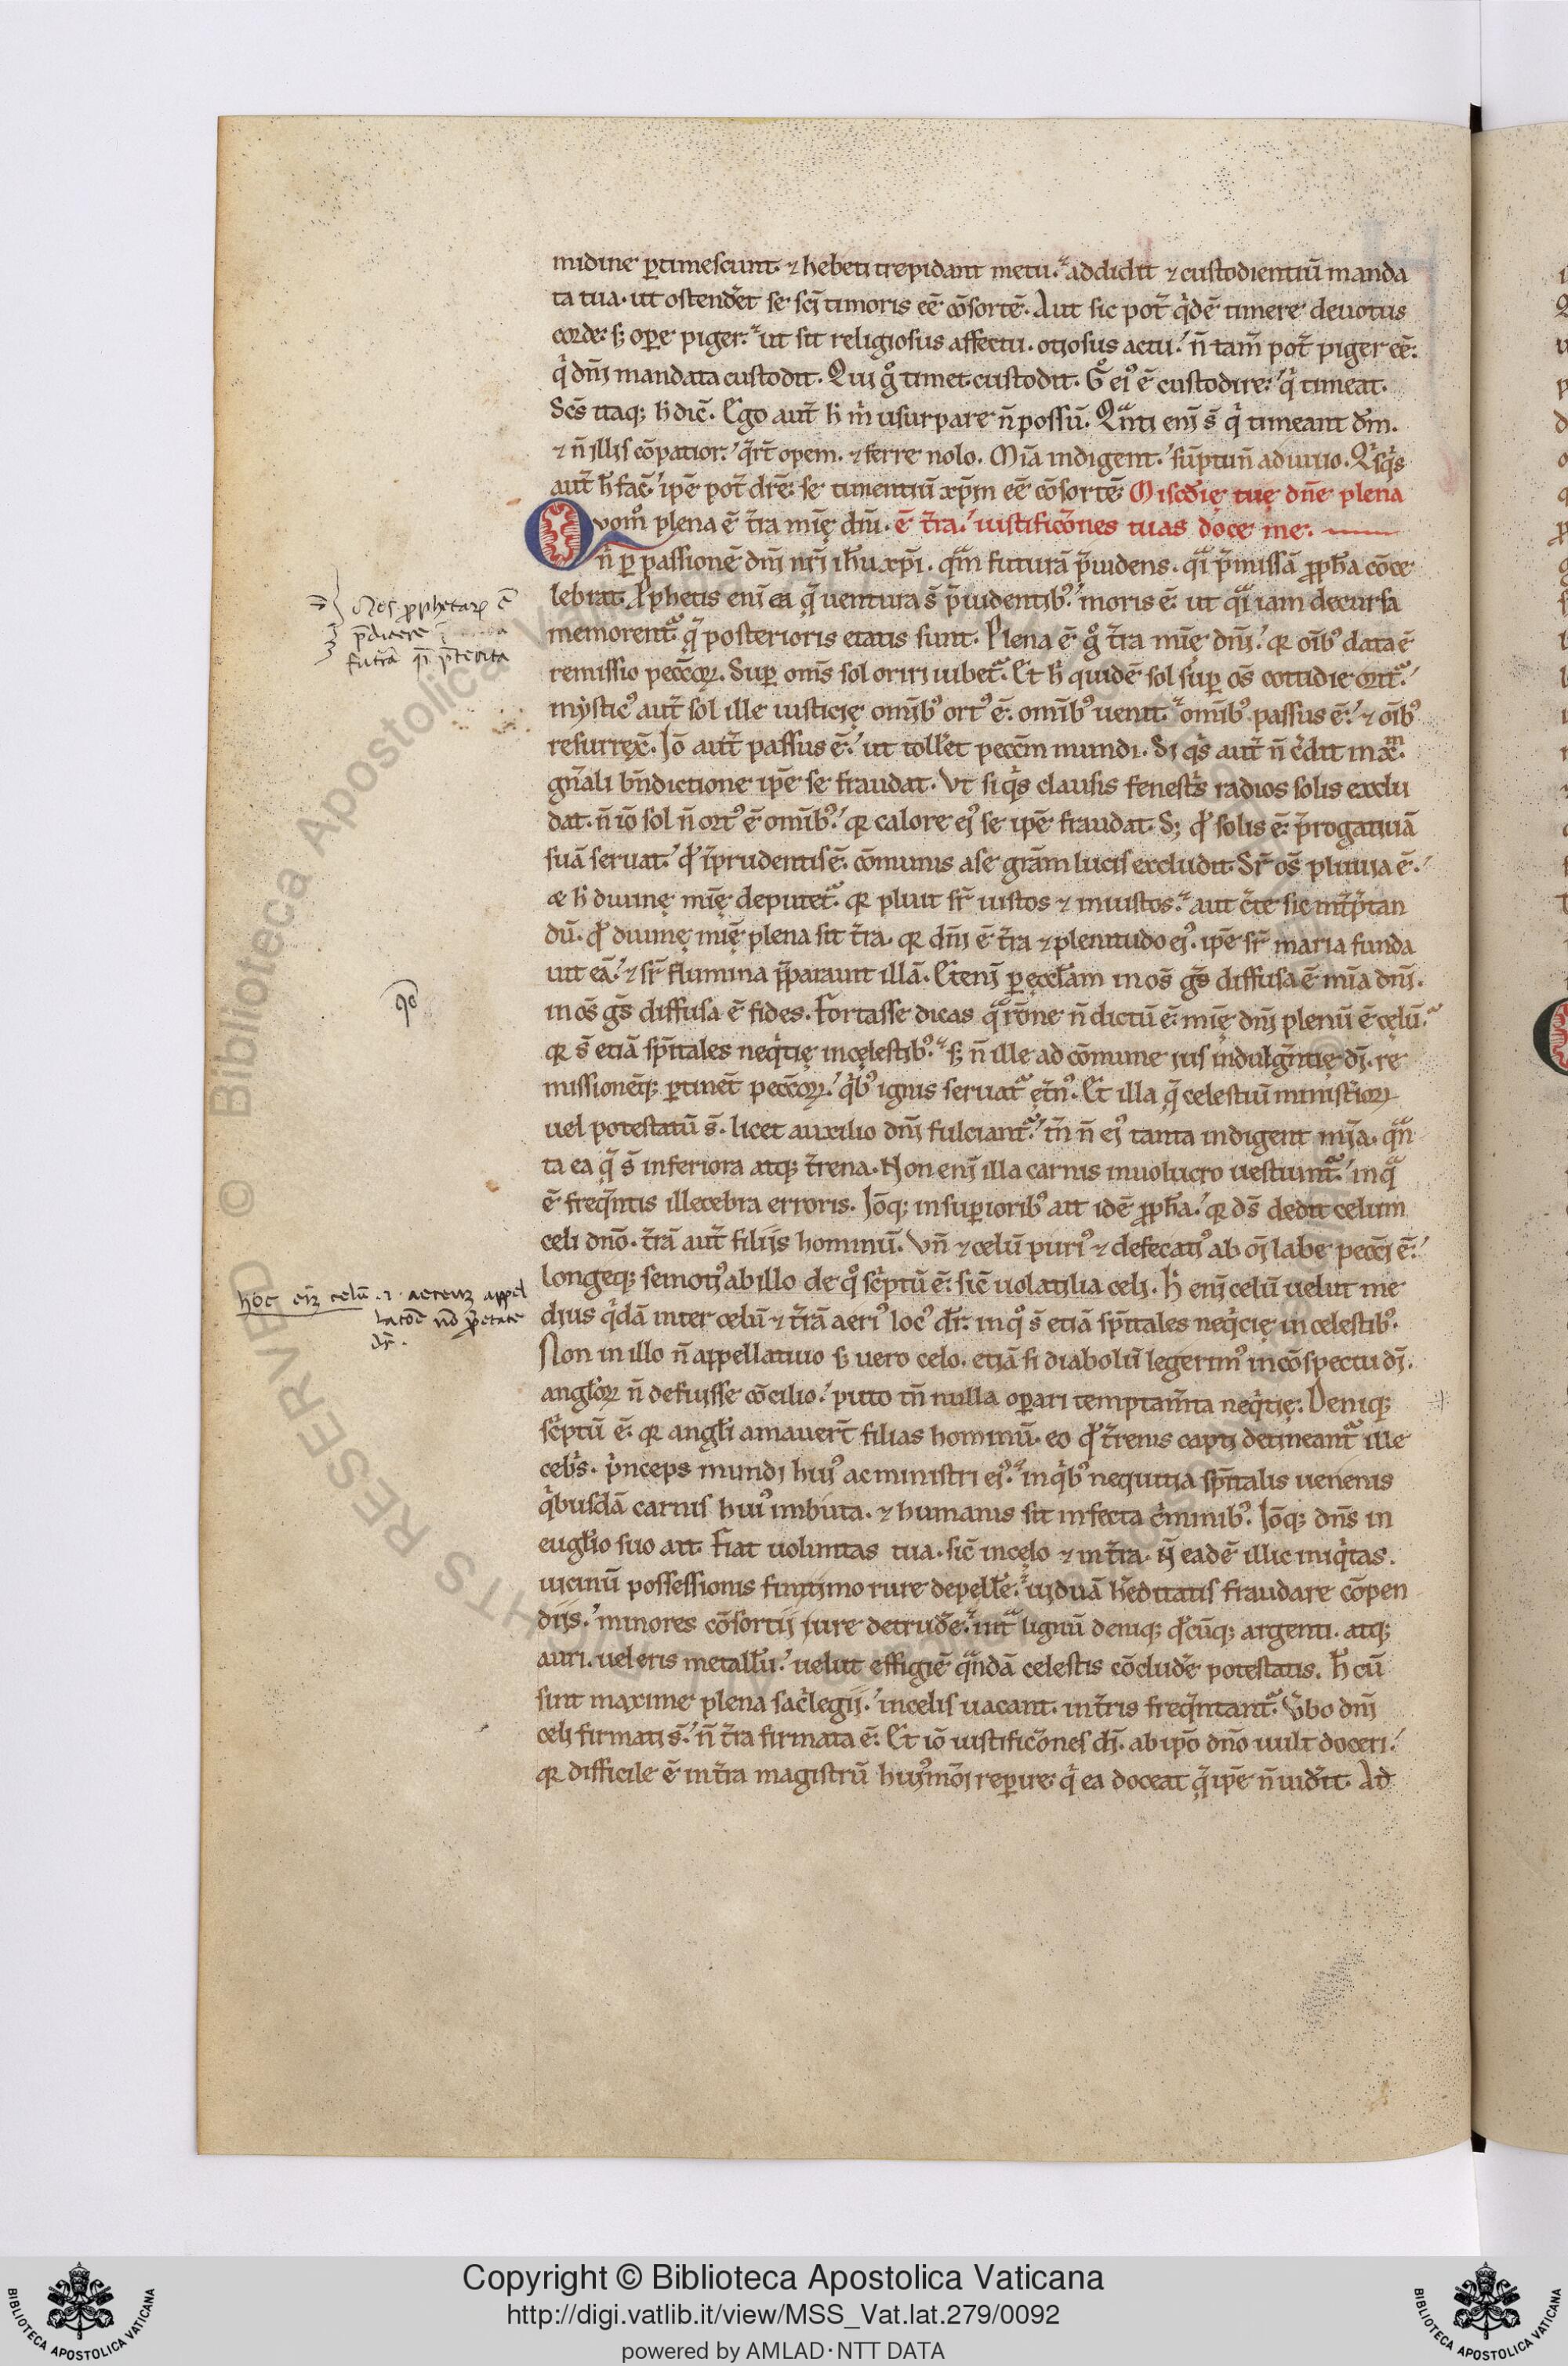 midine ꝑtimescunt. ⁊ hebeti trepidant metu. addidit ⁊ custodientiū manda
ta tua. ut ostendet̄ se sc̄i timoris eē cōsortē. Aut sic pot̄ qͥdē timere deuotus
corde. s; oꝑe piger. ut sit religiosus affectu. otiosus actu. n̄ tam̄ pot̄ piger eē.
qͥ dn̄i mandata custodit. Qui gͦ timet custodit. Gͦ eiꝰ ē custodire. qͥ timeat.
Sc̄s itaq; h̄ dic̄. Ego aut̄ h̄ m̄ usurpare n̄ possū. Qͣnti eni s̄ qͥ timeant dm̄.
⁊ n̄ illis cōpatior. qͥrt̄ opem. ⁊ ferre nolo. Mīa indigent. sūptu n̄ adiuuo. Qͥsqͥs
aut̄ h̄ fac̄ ip̄e pot̄ dr̄e. se timentiū xp̄m eē cōsortē Misc̄dię tuę dn̄e plena
Quomͦ plena ē t̄ra mīę dn̄i. ē t̄ra. iustificōnes tuas doce me.
n̄ ꝑ passionē dn̄i nr̄i ih̄u xp̄i. qͣm futurā p̄uidens. qͣi p̄missā ꝓph̄a cōce
lebrat. Ꝓphetis eni ea q̄ uentura s̄ p̄uidentibꝰ moris ē. ut qͣi iam decursa
memorent᷑ q̄ posterioris etatis sunt. Plena ē gͦ t̄ra mīę dn̄i. qr oībꝰ data ē
remissio pecc̄oꝝ. Suꝑ om̄s sol oriri iubet᷑. Et h̄ quidē sol suꝑ os̄ cottidie orit᷑.
mysticꝰ aut̄ sol ille iusticię omībꝰ ortꝰ ē. omībꝰ uenit. omībꝰ passus ē. ⁊ oībꝰ
resurrex̄. Iō aut̄ passus ē. ut toll̄et pecc̄m mundi. Si qͥs aut̄ n̄ c̄dit in xm̄.
gn̄ali bn̄dictione ip̄e se fraudat. Vt si qͥs clausis fenestͥs radios solis exclu
dat. n̄ iō sol n̄ ortꝰ ē omībꝰ. qr calore eiꝰ se ip̄e fraudat. S; qͦ solis ē. p̄rogatiuā
suā seruat. qͦ īprudentis ē. cōmunis a se gr̄am lucis excludit. Sr̄ os̄ pluuia ē.
⁊ h̄ diuinę mīę deputet᷑. qr pluit sr̄ iustos ⁊ iniustos. aut c̄te sic int̄p̄tan
dū. qͦ diuinę mīę plena sit t̄ra. qr dn̄i ē t̄ra ⁊ plenitudo eiꝰ. ip̄e sr̄ maria funda
uit eā. ⁊ sr̄ flumina p̄parauit illā. Eteni ꝑ eccl̄am in os̄ gs̄ diffusa ē mīa dn̄i.
in os̄ gs̄ diffusa ē fides. Fortasse dicas qͣ rōne n̄ dictū ē. mīę dn̄i plenū ē celū.
qr s̄ etiā spīitales neqͥtię in celestibꝰ. s; n̄ ille ad cōmune ius indulgn̄tię di. re
missionēq; ꝑtinet̄ pecc̄oꝝ. qͥbꝰ ignis seruat᷑ et̄nꝰ. Et illa q̄ celestiū ministioꝝ
uel potestatū s̄. licet auxilio dn̄i fulciant᷑. tn̄ n̄ eiꝰ tanta indigent mīa. qͣn
ta ea q̄ s̄ inferiora atq; t̄rena. Non eni illa carnis inuolucro uestiunt᷑. in qͣ
ē freqn̄tis illecebra erroris. Iōq; in suꝑioribꝰ ait idē ꝓph̄a. qr ds̄ dedit celum
celi dn̄o. t̄rā aut̄ filiis hominū. Vn̄ ⁊ celū puriꝰ ⁊ defecatiꝰ ab oi labe pecci ē.
longeq; semotiꝰ ab illo de qͦ sc̄ptū ē. sic̄ uolatilia celi. h̄ eni celū uelut me
dius qͥdā inter celū ⁊ t̄rā aeriꝰ locꝰ dr̄. in qͦ s̄ etiā spīitales neqͥcię in celestibꝰ.
Non in illo n̄ appellatiuo s; uero celo. etiā si diabolū legerimꝰ in cōspectu di.
angl̄oꝝ n̄ defuisse cōcilio. puto tn̄ nulla oꝑari temptam̄ta neqͥtię. Deniq;
sc̄ptū ē. qr angl̄i amauert̄ filias hominū. eo qͦ t̄renis capti detineant᷑ ille
cebͥs. pͥnceps mundi huiꝰ ac ministri eiꝰ. in qͥbꝰ nequitia spīitalis uenenis
qͥbusdā carnis huiꝰ imbuta. ⁊ humanis sit infecta cͥminibꝰ. Iōq; dn̄s in
eugl̄io suo ait. Fiat uoluntas tua. sic̄ in celo ⁊ in t̄ra. n̄ eadē illic iniqͥtas.
uicinū possessionis finitimo rure depell̄e. uiduā h̄editatis fraudare cōpen
diis. minores cōsortii iure detrud̄e. int᷑ lignū deniq; qͦcūq; argenti. atq;
auri. uel eris metall̄u. uelut effigiē qͣndā celestis cōclud̄e potestatis. h̄ cū
sint maxime plena sac̄legii. in celis uacant. in t̄ris freqn̄tant᷑. V̄bo dn̄i
celi firmati s̄. n̄ t̄ra firmata ē. Et iō iustificōnes di. ab ip̄o dn̄o uult doceri.
qr difficile ē in t̄ra magistrū huiꝰmōi reꝑire qͥ ea doceat q̄ ip̄e n̄ uid̄it. Ad
Mos ꝓphetaꝝ ē
p̄dicere
futura qͣi p̄terita
hoc eīꝫ celū .i. aereuꝫ appel
latōe nō ꝓprietate
dr̄.
Copyright © Biblioteca Apostolica Vaticana
http://digi.vatlib.it/view/MSS_Vat.lat.279/0092
powered by AMLAD·NTT DATA
BIBLIOTECA APOSTOLICA VATICANA
BIBLIOTECA APOSTOLICA VATICANA